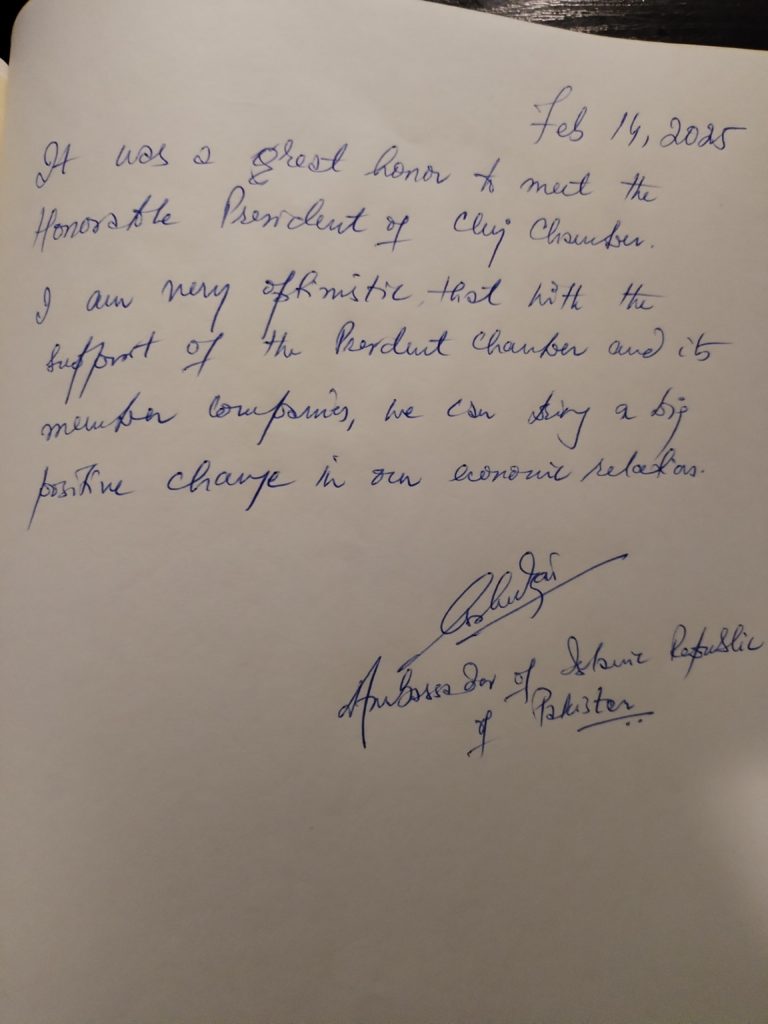 Feb 14, 2025
It was a great honor to meet the
Honorable President of Cluj Chamber.
I am very optimistic, that with the
support of the President Chamber and its
member companies, we can bring a big
positive change in our economic relations.
Ambassador of Islamic Republic
of Pakistan